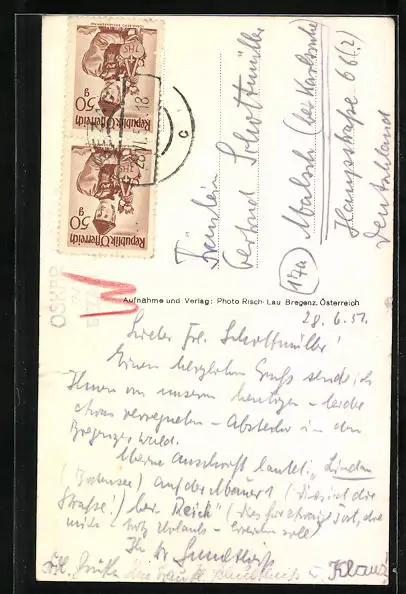 Republik Österreich
50 g
Republik Österreich
50 g
28. VI. 5 18
c
Fräulein
Gertrud Schottmüller
(17a) Malsch (bei Karlsruhe)
Hauptstraße 66 (?)
Deutschland
Aufnahme und Verlag: Photo Risch-Lau Bregenz, Österreich
OSKAR
28.6.51.
Liebes Frl. Schottmüller!
Einen herzlichen Gruß sende ich
Ihnen von unserem heutigen - leider
etwas verregneten - Abstecher in den
Bregenzer Wald.
Meine Anschrift lautet: "Lindau
(Bodensee) Auf der Mauer 1 (Dies ist die
Straße!) bei Reick" (Dies für etwaige Post, die
mich trotz Urlaubs erreichen soll)
Ihr Dr.
Frl.